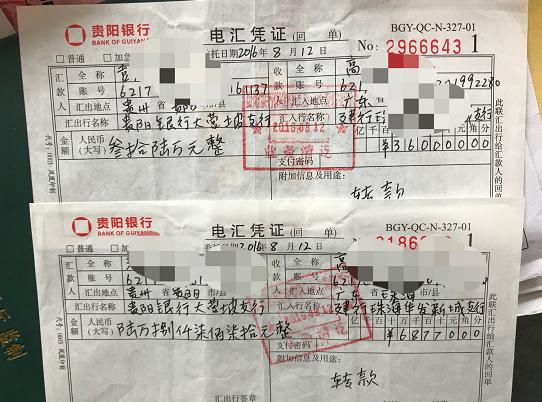 贵阳银行
BANK OF GUIYANG
电汇凭证(回 单)
BGY-QC-N-327-01
□普通 □加
托日期2016年8月12日
No: 2966643 1
汇款人
全称 贵
账号 6217 161137
汇出地点 贵州 省 市/县
汇出行名称 贵阳银行大营坡支行
收款人
全称 高
账号 621 01992280
汇入地点 广东
汇入行名称 支行
金额
人民币(大写) 叁拾陆万元整
亿千百十万千百十元角分
¥36000000
2016.08.12
业务清讫
支付密码
附加信息及用途:
转款
此联汇出行给汇款人的回单
贵阳银行
BANK OF GUIYANG
电汇凭证(回 单)
BGY-QC-N-327-01
□普通 □加急
委托日期2016年8月12日
186 1
汇款人
全称
账号 621
汇出地点 贵州 省 贵阳 市/县
汇出行名称 贵阳银行大营坡支行
收款人
全称 高
账号 621
汇入地点 广东 省 珠海 市/县
汇入行名称 建行珠海华发新城支行
金额
人民币(大写) 陆万捌仟柒佰柒拾元整
亿千百十万千百十元角分
¥6877000
支付密码
附加信息及用途:
转款
汇出行签章
此联汇出行给汇款人的回单